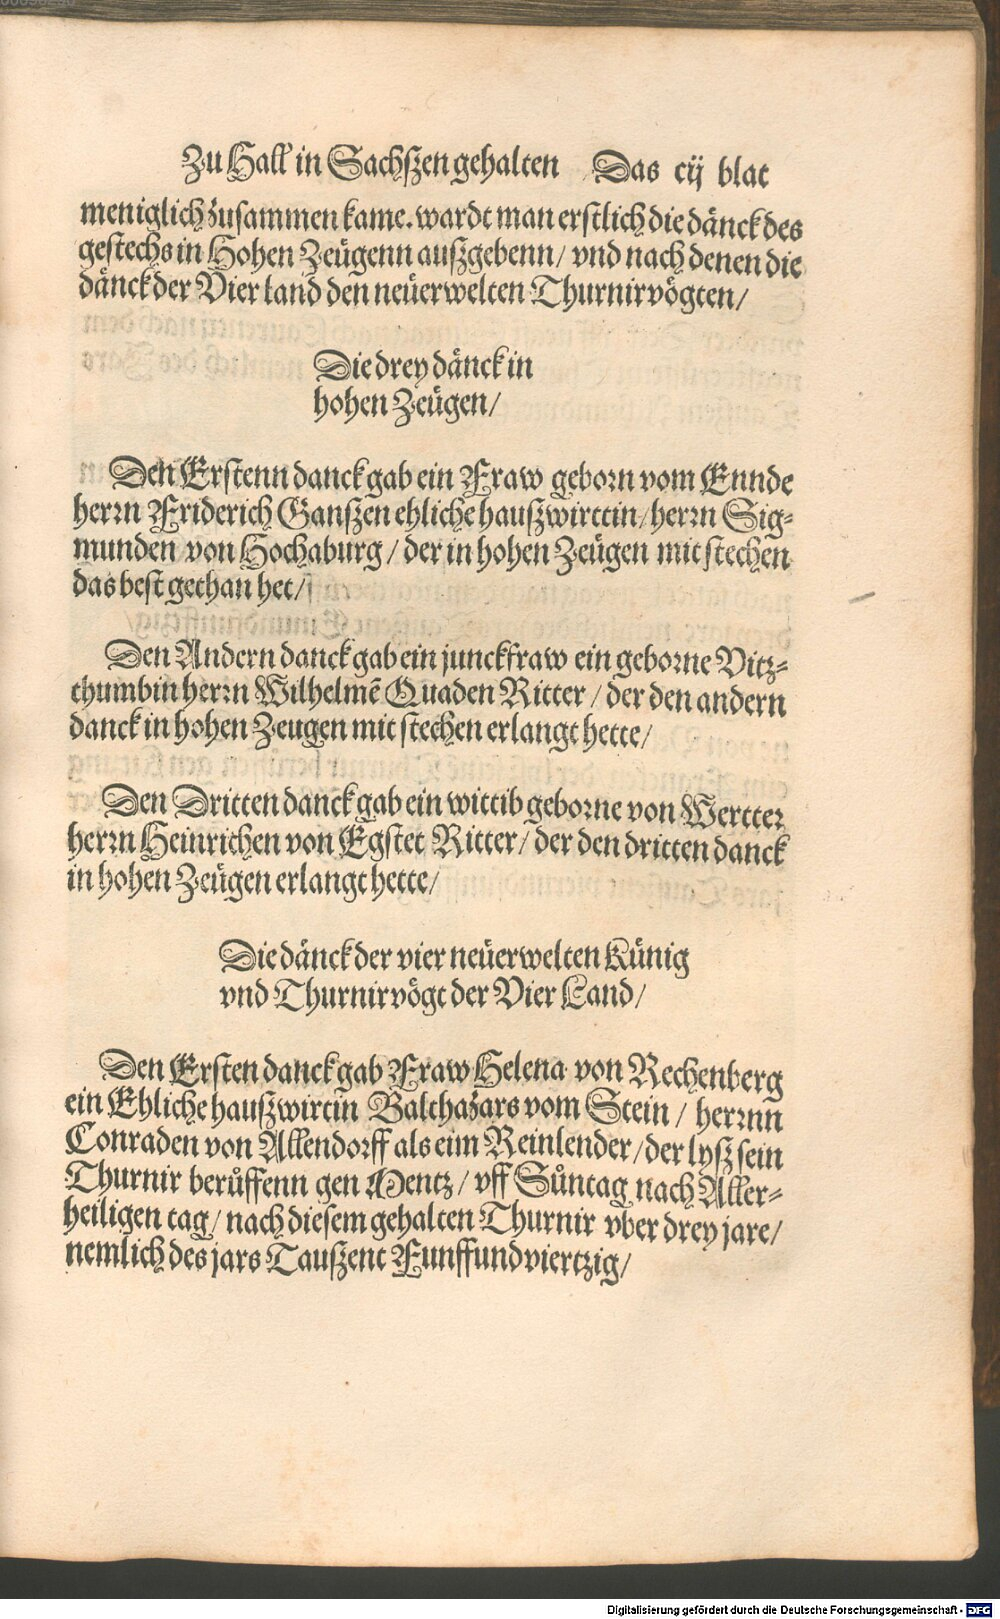 Zu Hall in Sachszen gehalten Das cij blat
meniglich zusammen kame. wardt man erstlich die dänck des
gestechs in Hohen Zeügenn auszgebenn / vnd nach denen die
dänck der Vier land den neüerwelten Thurnirvögten /
Die drey dänck in
hohen Zeügen /
Den Erstenn danck gab ein Fraw geborn vom Ennde
herrn Friderich Ganszen ehliche hauszwirttin / herrn Sig-
munden von Hochaburg / der in hohen Zeügen mit stechen
das best gethan het /
Den Andern danck gab ein junckfraw ein geborne Vitz-
thumbin herrn Wilhelmē Quaden Ritter / der den andern
danck in hohen Zeugen mit stechen erlangt hette /
Den Dritten danck gab ein wittib geborne von Wertter
herrn Heinrichen von Egstet Ritter / der den dritten danck
in hohen Zeügen erlangt hette /
Die dänck der vier neüerwelten Künig
vnd Thurnirvögt der Vier Land /
Den Ersten danck gab Fraw Helena von Rechenberg
ein Ehliche hauszwirtin Balthazars vom Stein / herrnn
Conraden von Allendorff als eim Reinlender / der lysz sein
Thurnir berůffenn gen Mentz / vff Sůntag nach Aller-
heiligen tag / nach diesem gehalten Thurnir vber drey jare /
nemlich des jars Tauszent Funffundviertzig /
Digitalisierung gefördert durch die Deutsche Forschungsgemeinschaft - DFG